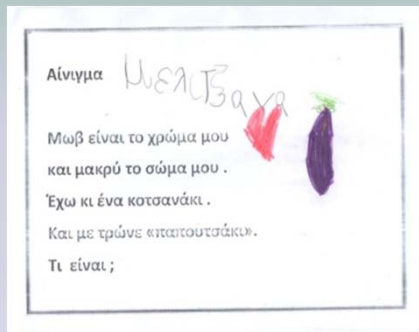 Αίνιγμα Μελιτζανα
Μωβ είναι το χρώμα μου
και μακρύ το σώμα μου .
Έχω κι ένα κοτσανάκι .
Και με τρώνε «παπουτσάκι».
Τι είναι ;